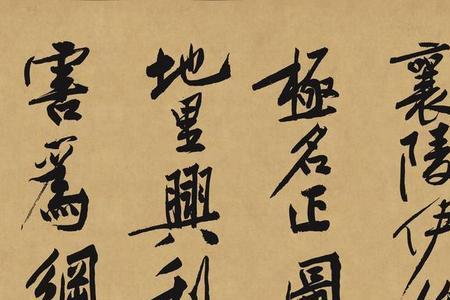 襄陵伊
極名正圖
地里興利
害爲綱